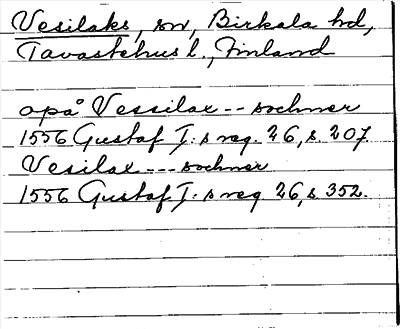 Vesilaks, sn, Birkala hd,
Tavastehus l., Finland
opå Vessilax -- sochner
1556 Gustaf I:s reg. 26, s. 207.
Vesilax --- sochner
1556 Gustaf I:s reg. 26, s. 352.